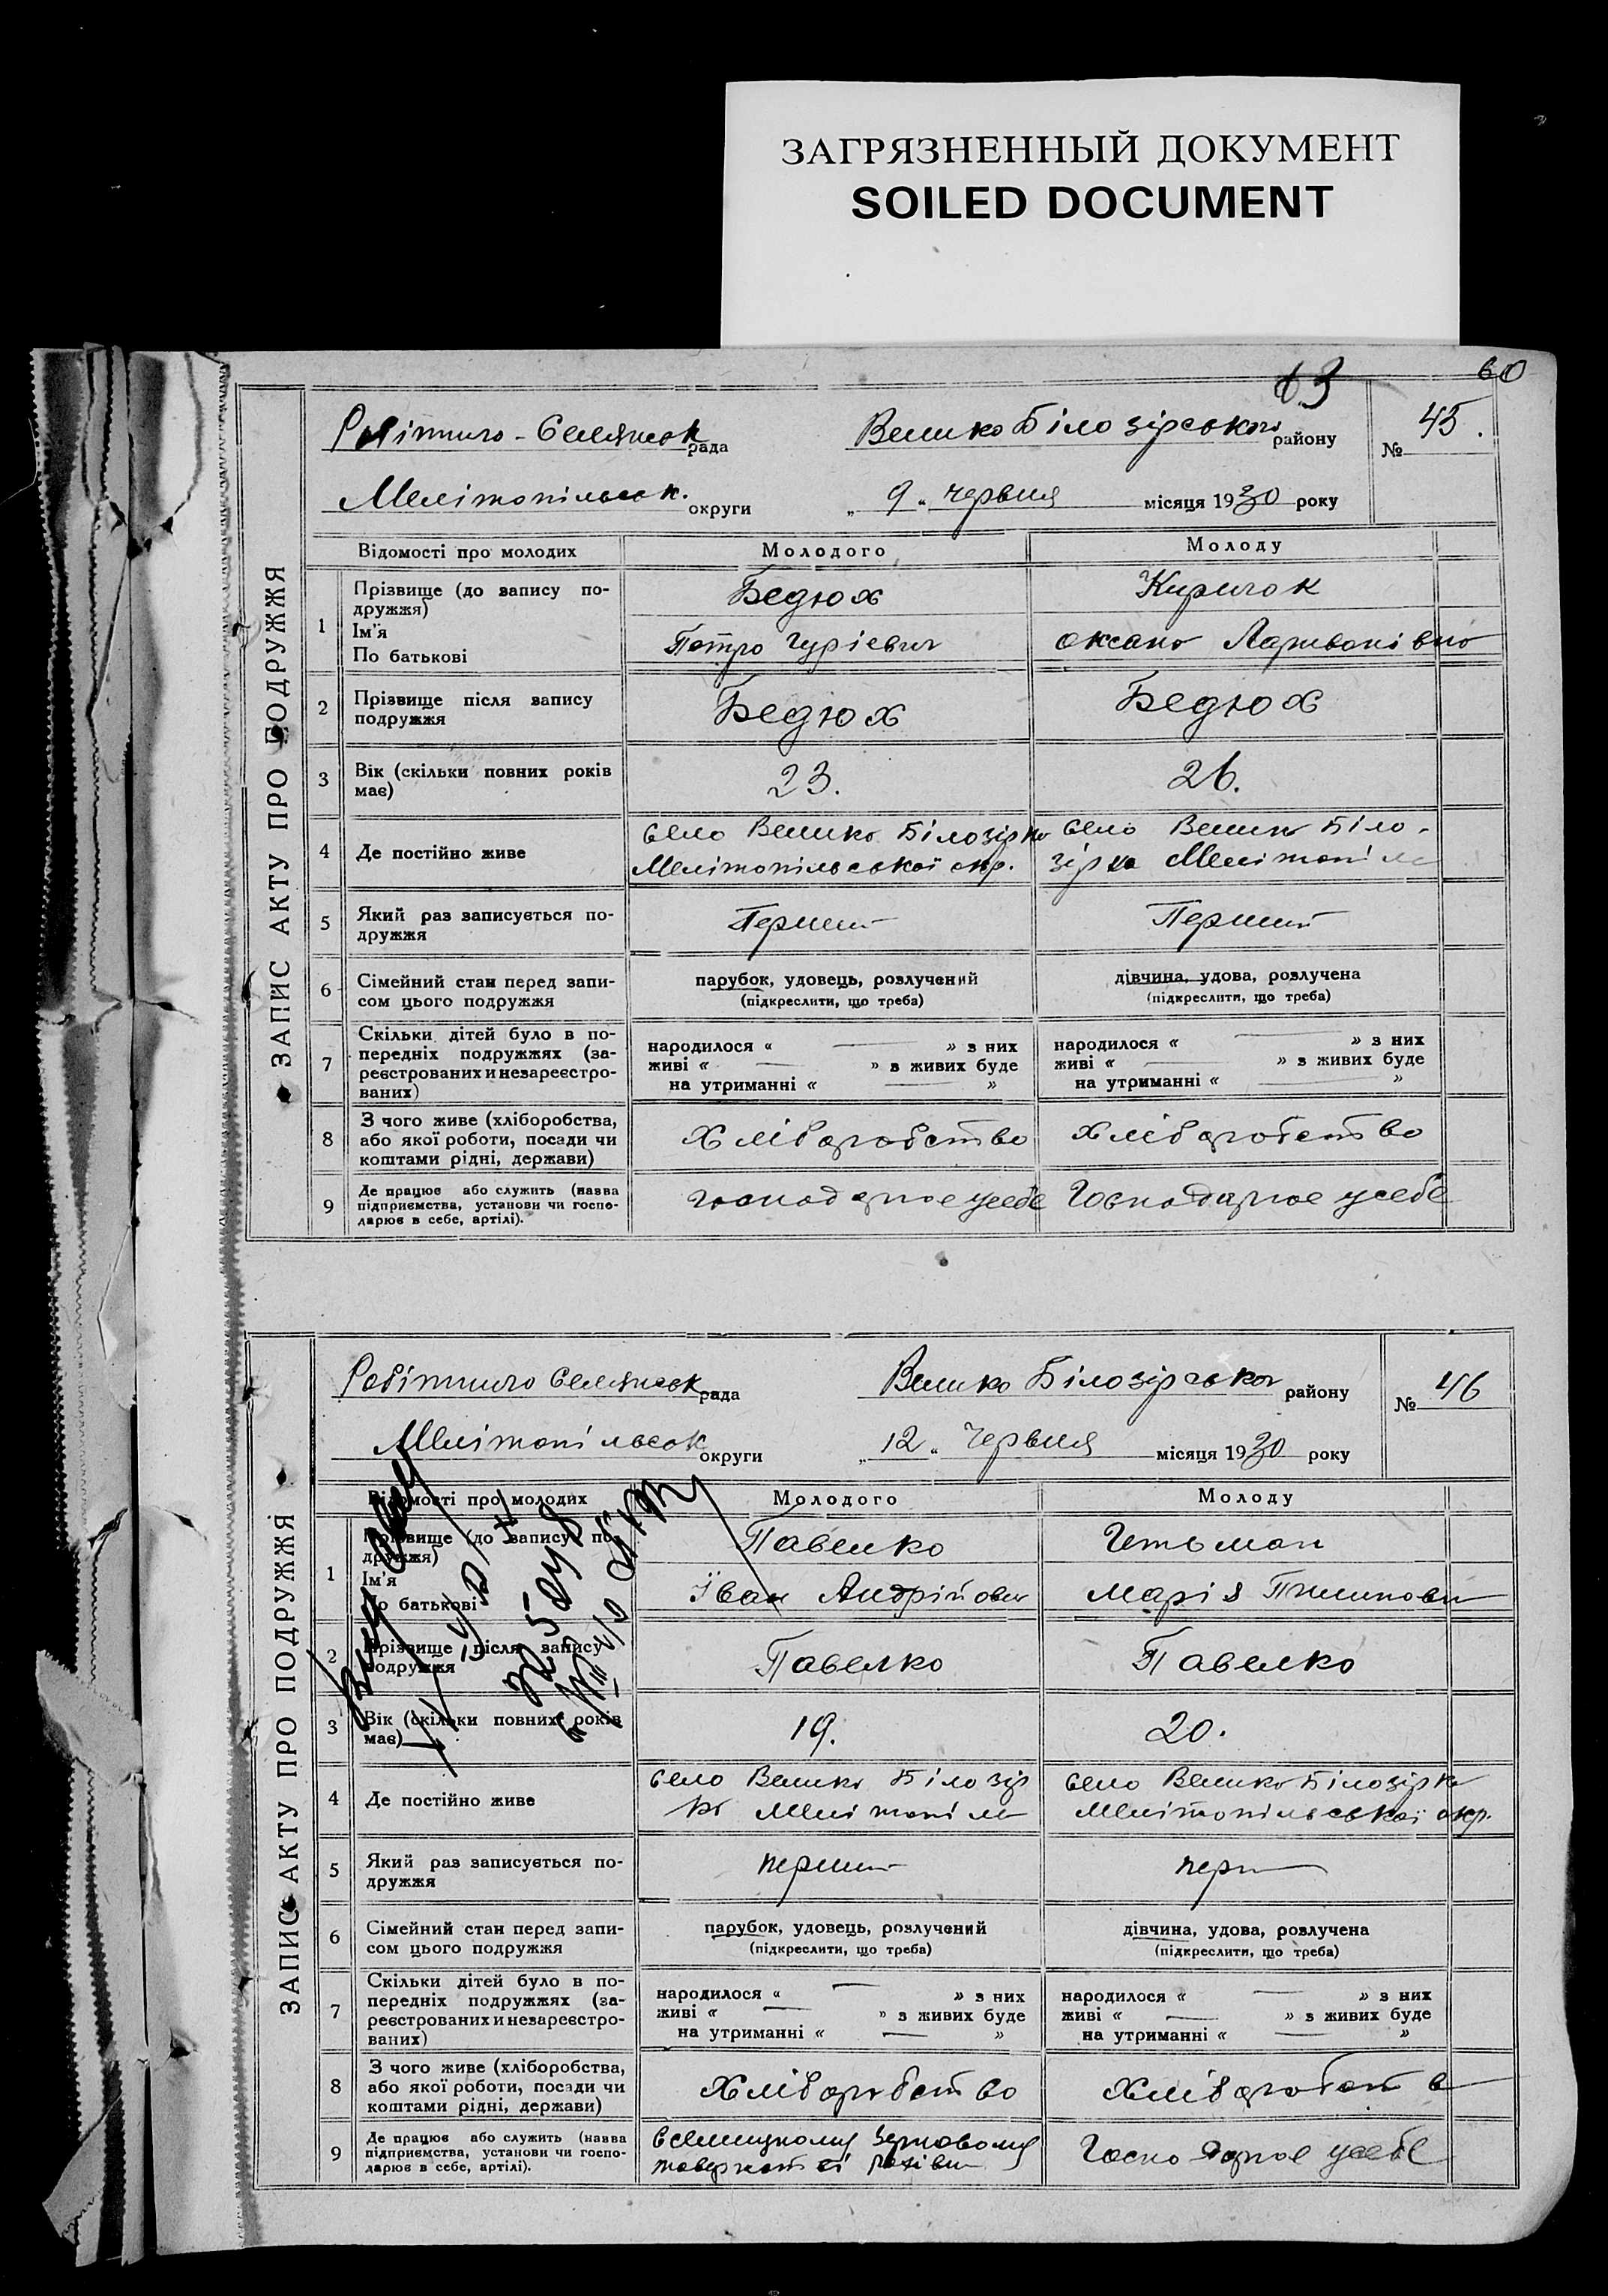 ЗАГРЯЗНЕННЫЙ ДОКУМЕНТ
SOILED DOCUMENT
60
63
ЗАПИС АКТУ ПРО ПОДРУЖЖЯ
Робітничо-Селянськ рада Велико Білозірського району № 45.
Мелітопільськ. округи „9“ червня місяця 1930 року
Відомості про молодих Молодого Молоду
1 Прізвище (до запису подружжя) Бедюх Киричок
Ім'я
По батькові Петро Гурієвич Оксана
2 Прізвище після запису подружжя Бедюх Бедюх
3 Вік (скільки повних років має) 23. 26.
4 Де постійно живе село Велико Білозірка село Велико Біло-
Мелітопільської окр. зірка Мелітопіль
5 Який раз записується подружжя Перший Перший
6 Сімейний стан перед записом цього подружжя парубок, удовець, розлучений дівчина, удова, розлучена
(підкреслити, що треба) (підкреслити, що треба)
7 Скільки дітей було в попередніх подружжях (зареєстрованих и незареєстрованих)
народилося « — » з них народилося « — » з них
живі « — » з живих буде живі « — » з живих буде
на утриманні « — » на утриманні « — »
8 З чого живе (хліборобства, або якої роботи, посади чи коштами рідні, держави) Хліборобство Хліборобство
9 Де працює або служить (назва підприємства, установи чи господарює в себе, артілі). Господарює у себе Господарює у себе
ЗАПИС АКТУ ПРО ПОДРУЖЖЯ
Робітничо Селянськ рада Велико Білозірського району № 46
Мелітопільськ округи „12“ Червня місяця 1930 року
Відомості про молодих Молодого Молоду
1 Прізвище (до запису подружжя) Павелко Гетьман
Ім'я
По батькові Іван Андрійович Марія
2 Прізвище після запису подружжя Павелко Павелко
3 Вік (скільки повних років має) 19. 20.
4 Де постійно живе село Велико Білозір село Велико Білозірка
ка Мелітопіль Мелітопільської окр.
5 Який раз записується подружжя перший перш
6 Сімейний стан перед записом цього подружжя парубок, удовець, розлучений дівчина, удова, розлучена
(підкреслити, що треба) (підкреслити, що треба)
7 Скільки дітей було в попередніх подружжях (зареєстрованих и незареєстрованих)
народилося « — » з них народилося « — » з них
живі « — » з живих буде живі « — » з живих буде
на утриманні « — » на утриманні « — »
8 З чого живе (хліборобства, або якої роботи, посади чи коштами рідні, держави) Хліборобство Хліборобств
9 Де працює або служить (назва підприємства, установи чи господарює в себе, артілі). зерновому Господарює у себе